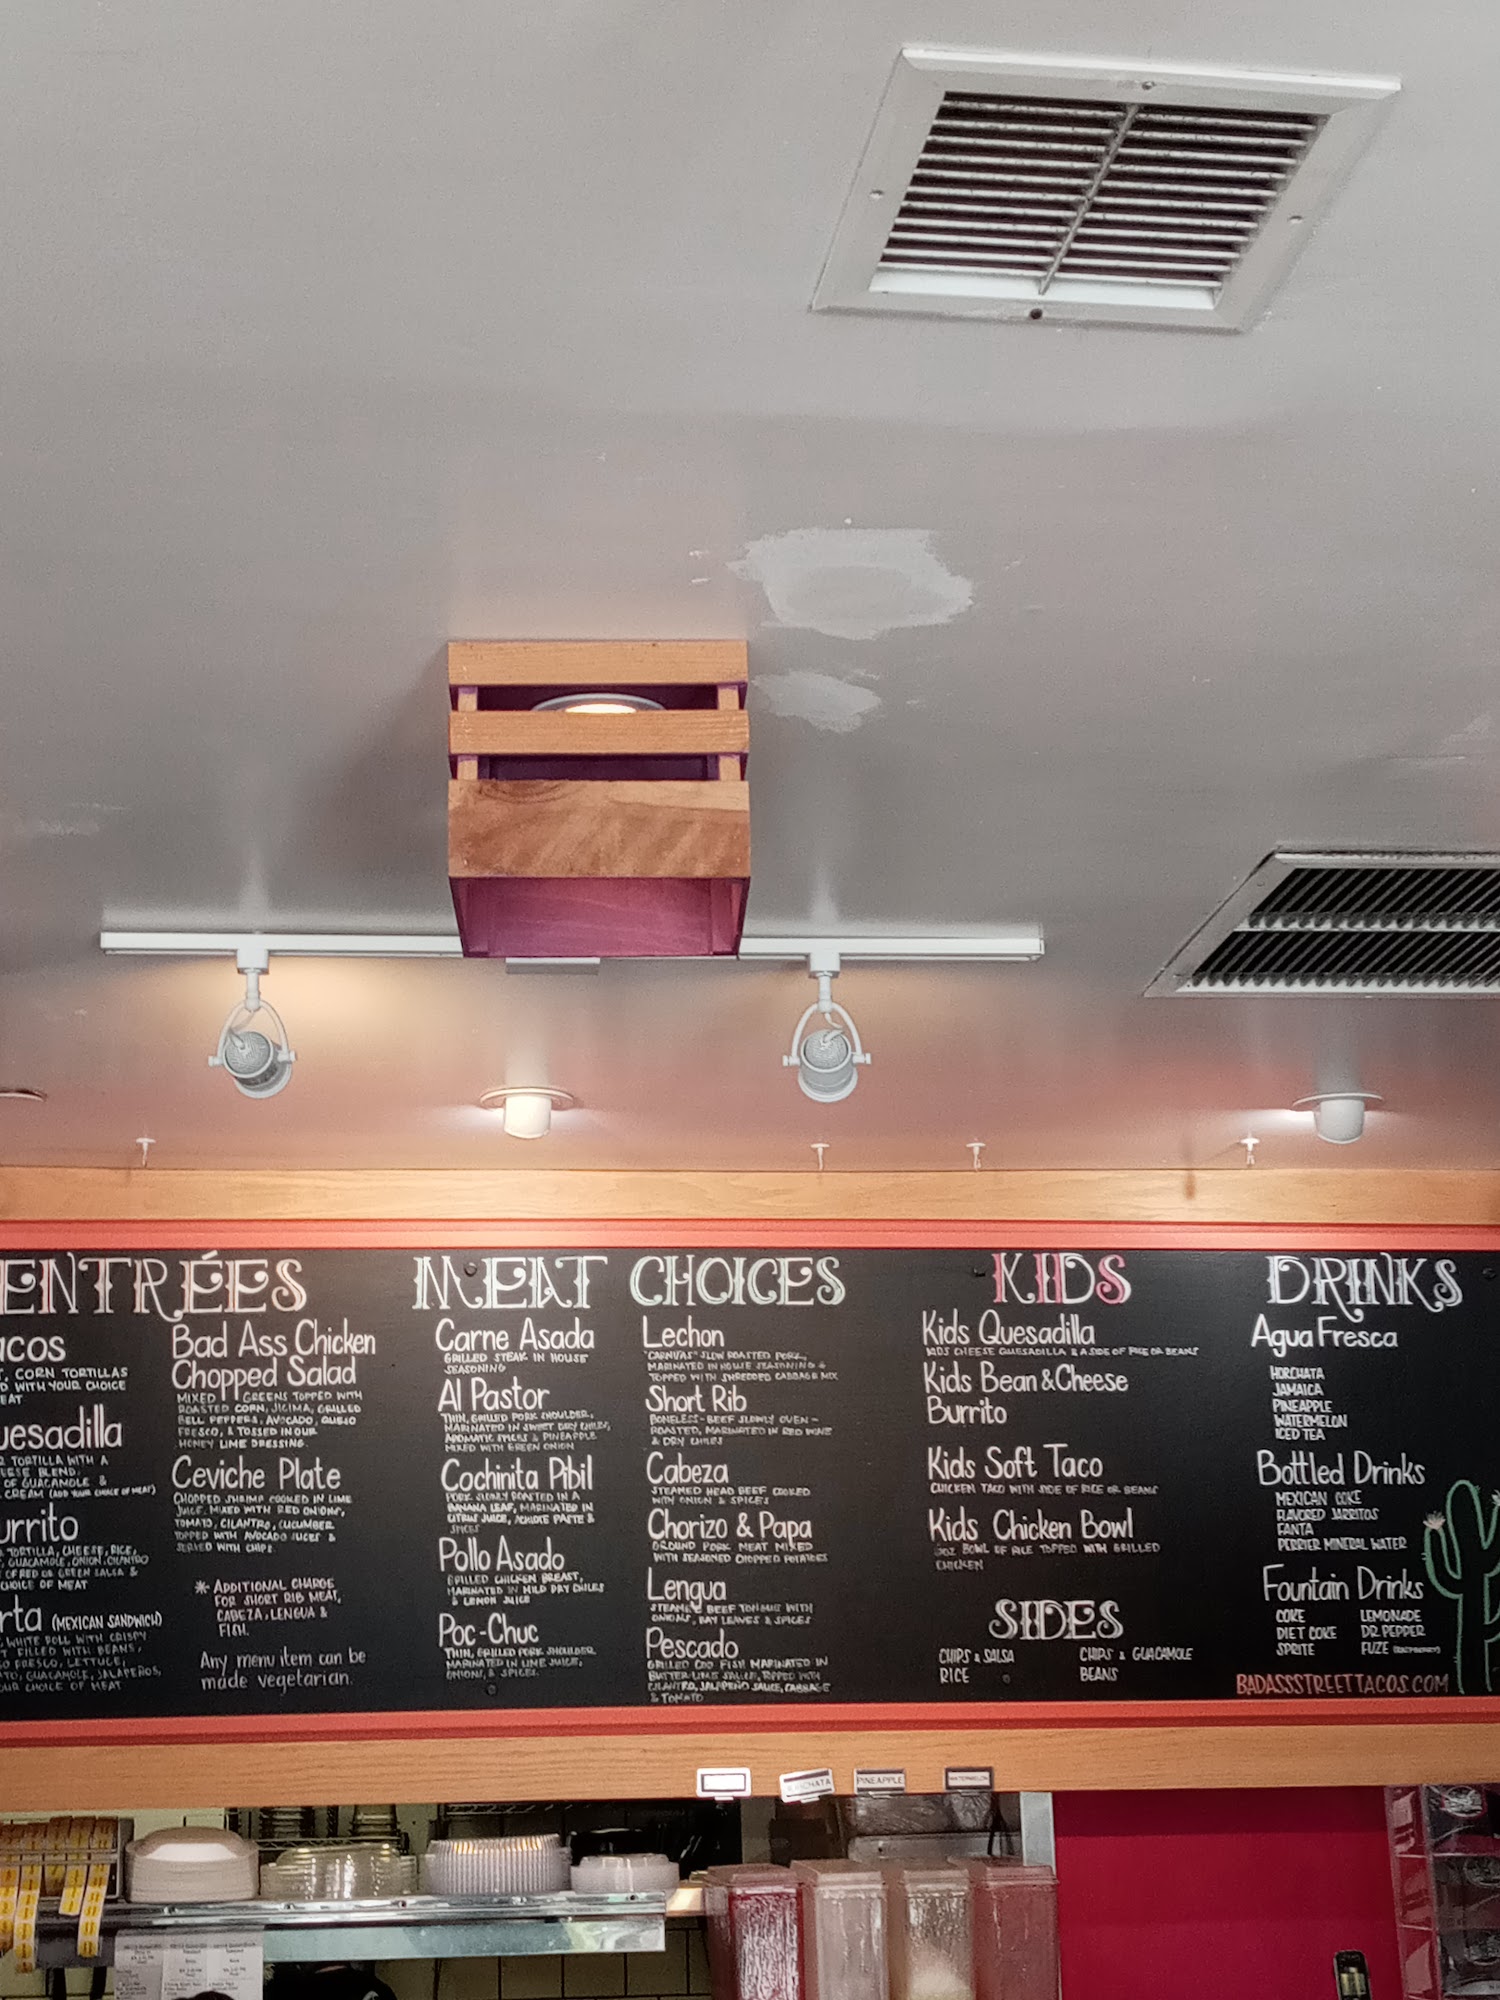 ENTRÉES
acos
, CORN TORTILLAS
D WITH YOUR CHOICE
EAT
uesadilla
TORTILLA WITH A
EESE BLEND,
OF GUACAMOLE &
CREAM (ADD YOUR CHOICE OF MEAT)
urrito
TORTILLA, CHEESE, RICE,
GUACAMOLE, ONION, CILANTRO
OF RED OR GREEN SALSA &
CHOICE OF MEAT
rta (MEXICAN SANDWICH)
WHITE ROLL WITH CRISPY
T FILLED WITH BEANS,
O FRESCO, LETTUCE,
TO, GUACAMOLE, JALAPEÑOS,
OUR CHOICE OF MEAT
Bad Ass Chicken
Chopped Salad
MIXED GREENS TOPPED WITH
ROASTED CORN, JICIMA, GRILLED
BELL PEPPERS, AVOCADO, QUESO
FRESCO, & TOSSED IN OUR
HONEY LIME DRESSING.
Ceviche Plate
CHOPPED SHRIMP COOKED IN LIME
JUICE. MIXED WITH RED ONIONS,
TOMATO, CILANTRO, CUCUMBER
TOPPED WITH AVOCADO SLICES &
SERVED WITH CHIPS.
* ADDITIONAL CHARGE
FOR SHORT RIB MEAT,
CABEZA, LENGUA &
FISH.
Any menu item can be
made vegetarian.
MEAT CHOICES
Carne Asada
GRILLED STEAK IN HOUSE
SEASONING
Al Pastor
THIN, GRILLED PORK SHOULDER,
MARINATED IN SWEET DRY CHILES,
AROMATIC SPICES & PINEAPPLE
MIXED WITH GREEN ONION
Cochinita Pibil
PORK SLOWLY ROASTED IN A
BANANA LEAF, MARINATED IN
CITRUS JUICE, ACHIOTE PASTE &
SPICES
Pollo Asado
GRILLED CHICKEN BREAST,
MARINATED IN MILD DRY CHILES
& LEMON JUICE
Poc-Chuc
THIN, GRILLED PORK SHOULDER
MARINATED IN LIME JUICE,
ONIONS, & SPICES.
Lechon
"CARNITAS" SLOW ROASTED PORK,
MARINATED IN HOUSE SEASONING &
TOPPED WITH SHREDDED CABBAGE MIX
Short Rib
BONELESS-BEEF SLOWLY OVEN-
ROASTED, MARINATED IN RED WINE
& DRY CHILES
Cabeza
STEAMED HEAD BEEF COOKED
WITH ONION & SPICES
Chorizo & Papa
GROUND PORK MEAT MIXED
WITH SEASONED CHOPPED POTATOES
Lengua
STEAMED BEEF TONGUE WITH
ONIONS, BAY LEAVES & SPICES
Pescado
GRILLED COD FISH MARINATED IN
BUTTER-LIME SAUCE, TOPPED WITH
CILANTRO, JALAPEÑO SAUCE, CABBAGE
& TOMATO
KIDS
Kids Quesadilla
KIDS CHEESE QUESADILLA & A SIDE OF RICE OR BEANS
Kids Bean & Cheese
Burrito
Kids Soft Taco
CHICKEN TACO WITH SIDE OF RICE OR BEANS
Kids Chicken Bowl
5OZ BOWL OF RICE TOPPED WITH GRILLED
CHICKEN
SIDES
CHIPS & SALSA
RICE
CHIPS & GUACAMOLE
BEANS
DRINKS
Agua Fresca
HORCHATA
JAMAICA
PINEAPPLE
WATERMELON
ICED TEA
Bottled Drinks
MEXICAN COKE
FLAVORED JARRITOS
FANTA
PERRIER MINERAL WATER
Fountain Drinks
COKE
DIET COKE
SPRITE
LEMONADE
DR PEPPER
FUZE (RASPBERRY)
BADASSSTREETTACOS.COM
HORCHATA
PINEAPPLE
WATERMELON